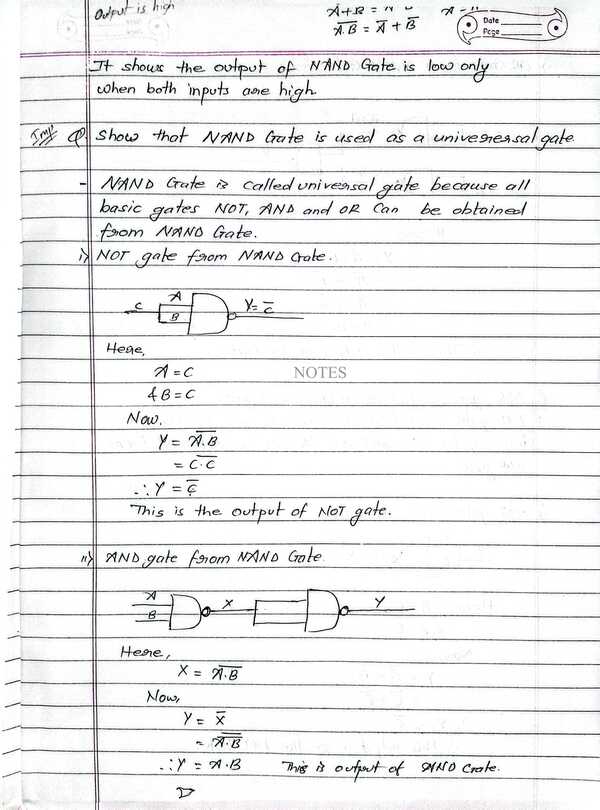 Output is high
A̅.̅B̅ = A̅ + B̅
Date
Page
It shows the output of NAND Gate is low only
when both inputs are high.
Imp Q. Show that NAND Gate is used as a universersal gate
- NAND Gate is called universal gate because all
basic gates NOT, AND and OR Can be obtained
from NAND Gate.
i) NOT gate from NAND Gate.
C A B Y = C̅
Here,
A = C
& B = C
NOTES
Now,
Y = A̅.̅B̅
= C̅.̅C̅
∴ Y = C̅
This is the output of NOT gate.
ii) AND gate from NAND Gate
A B X Y
Here,
X = A̅.̅B̅
Now,
Y = X̅
= A̿.̿B̿
∴ Y = A.B This is output of AND Gate.